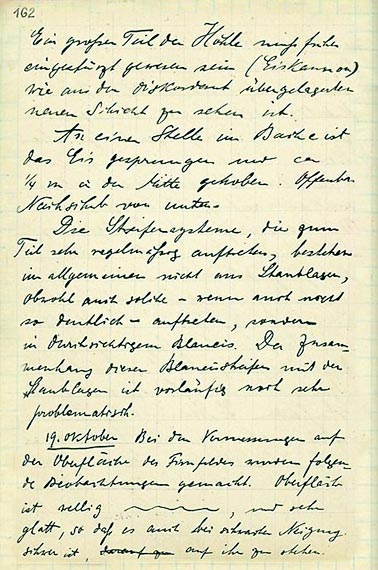 162
Ein großer Teil der Höhle muß früher
eingestürzt gewesen sein (Eiskammer)
wie aus der diskordant übergelagerten
neuen Schicht zu sehen ist.
An einer Stelle im Bache ist
das Eis gesprungen und ca
1/4 m in der Mitte gehoben. Offenbar
Nachschub von unten.
Die Streifensysteme, die zum
Teil sehr regelmäßig auftreten, bestehen
im allgemeinen nicht aus Staublagen,
obwohl auch solche – wenn auch nicht
so deutlich – auftreten, sondern
in durchsichtigem Blaueis. Der Zusam-
menhang dieser Blaueisstreifen mit den
Staublagen ist vorläufig noch sehr
problematisch.
19. Oktober Bei den Vermessungen auf
der Oberfläche des Firnfeldes wurden folgen-
de Beobachtungen gemacht. Oberfläche
ist wellig, und sehr
glatt, so daß es auch bei schwacher Neigung
schwer ist, auf ihr zu stehen.